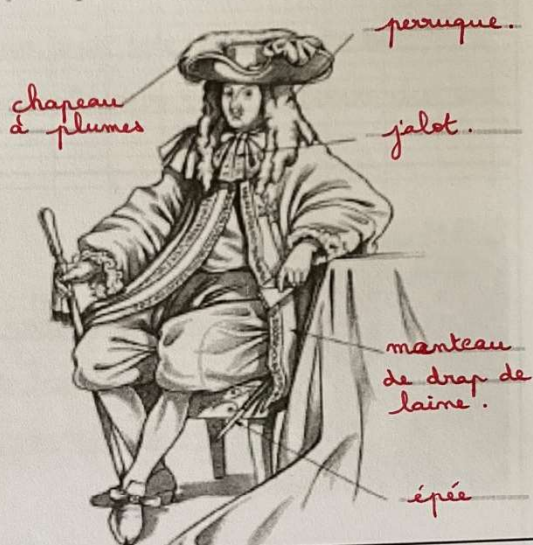 perruque.
chapeau
à plumes
jalot.
manteau
de drap de
laine.
épée